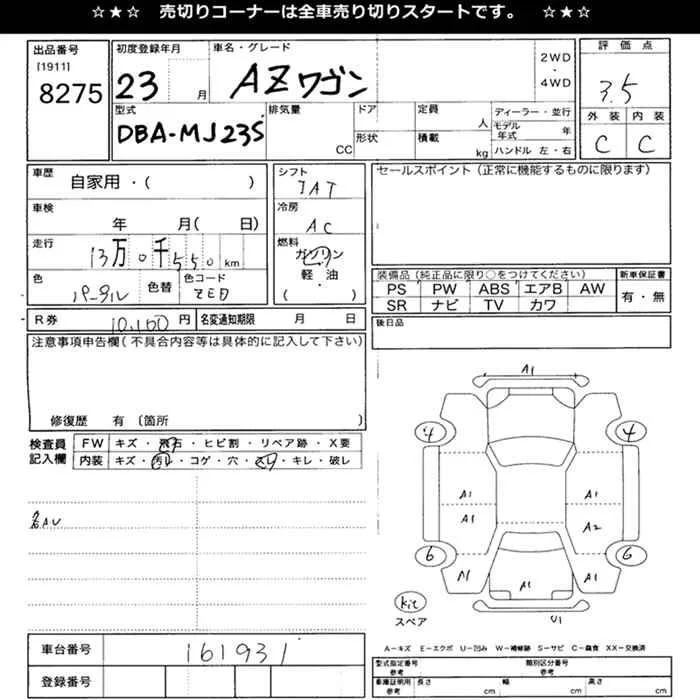 ☆★☆ 売切りコーナーは全車売り切りスタートです。 ☆★☆
出品番号
[1911]
8275
初度登録年月
23 月
車名・グレード
AZワゴン
2WD
・
4WD
評価点
3.5
外装 内装
C C
型式
DBA-MJ23S
排気量
CC
ドア
形状
定員
人
積載
kg
ディーラー・並行
モデル年式 年
ハンドル 左・右
車歴
自家用・( )
車検
年 月( 日)
走行
13万0千550km
色
パール
色替
色コード
ZED
シフト
IAT
冷房
AC
燃料
ガソリン
軽・油
( )
セールスポイント(正常に機能するものに限ります)
装備品(純正品に限り○をつけてください)
PS PW ABS エアB AW
SR ナビ TV カワ
新車保証書
有・無
後日品
R券
10,160円
名変通知期限 月 日
注意事項申告欄(不具合内容等は具体的に記入して下さい)
修復歴 有 〔箇所 〕
検査員
記入欄
FW キズ・飛石・ヒビ割・リペア跡・X要
内装 キズ・汚レ・コゲ・穴・スレ・キレ・破レ
A1
4 4
A1 A1
A1 A2
6 6
A1 A1
U1
kit
スペア
A-キズ E-エクボ U-凹み W-補修跡 S-サビ C-腐食 XX-交換済
車台番号
161931
登録番号
型式指定番号
参考
類別区分番号
参考
車庫証明用
参考
長さ cm
幅 cm
高さ cm